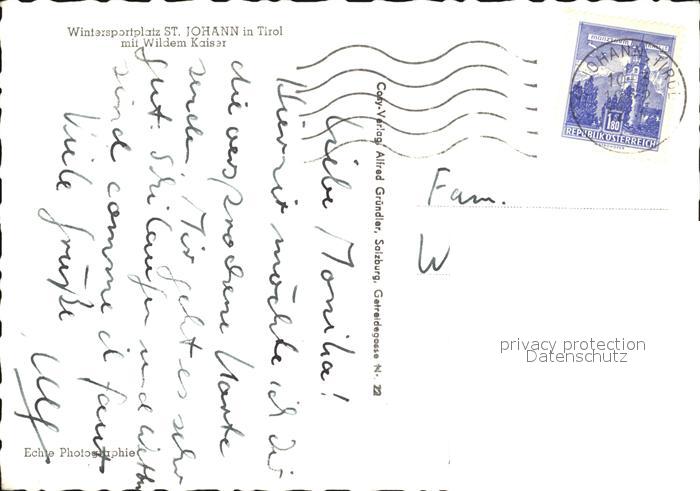 Wintersportplatz ST. JOHANN in Tirol
mit Wildem Kaiser
Liebe Monika!
Hiermit möchte ich dir
die versprochene Karte
senden. Mir geht es sehr
gut. Skilaufen und
sind comme il faut
Viele Grüße
Ulf
Echte Photographie
Cosy-Verlag Alfred Gründler, Salzburg, Getreidegasse Nr. 22
JOHANN TIROL
1.80
REPUBLIK ÖSTERREICH
Fam.
W
privacy protection
Datenschutz